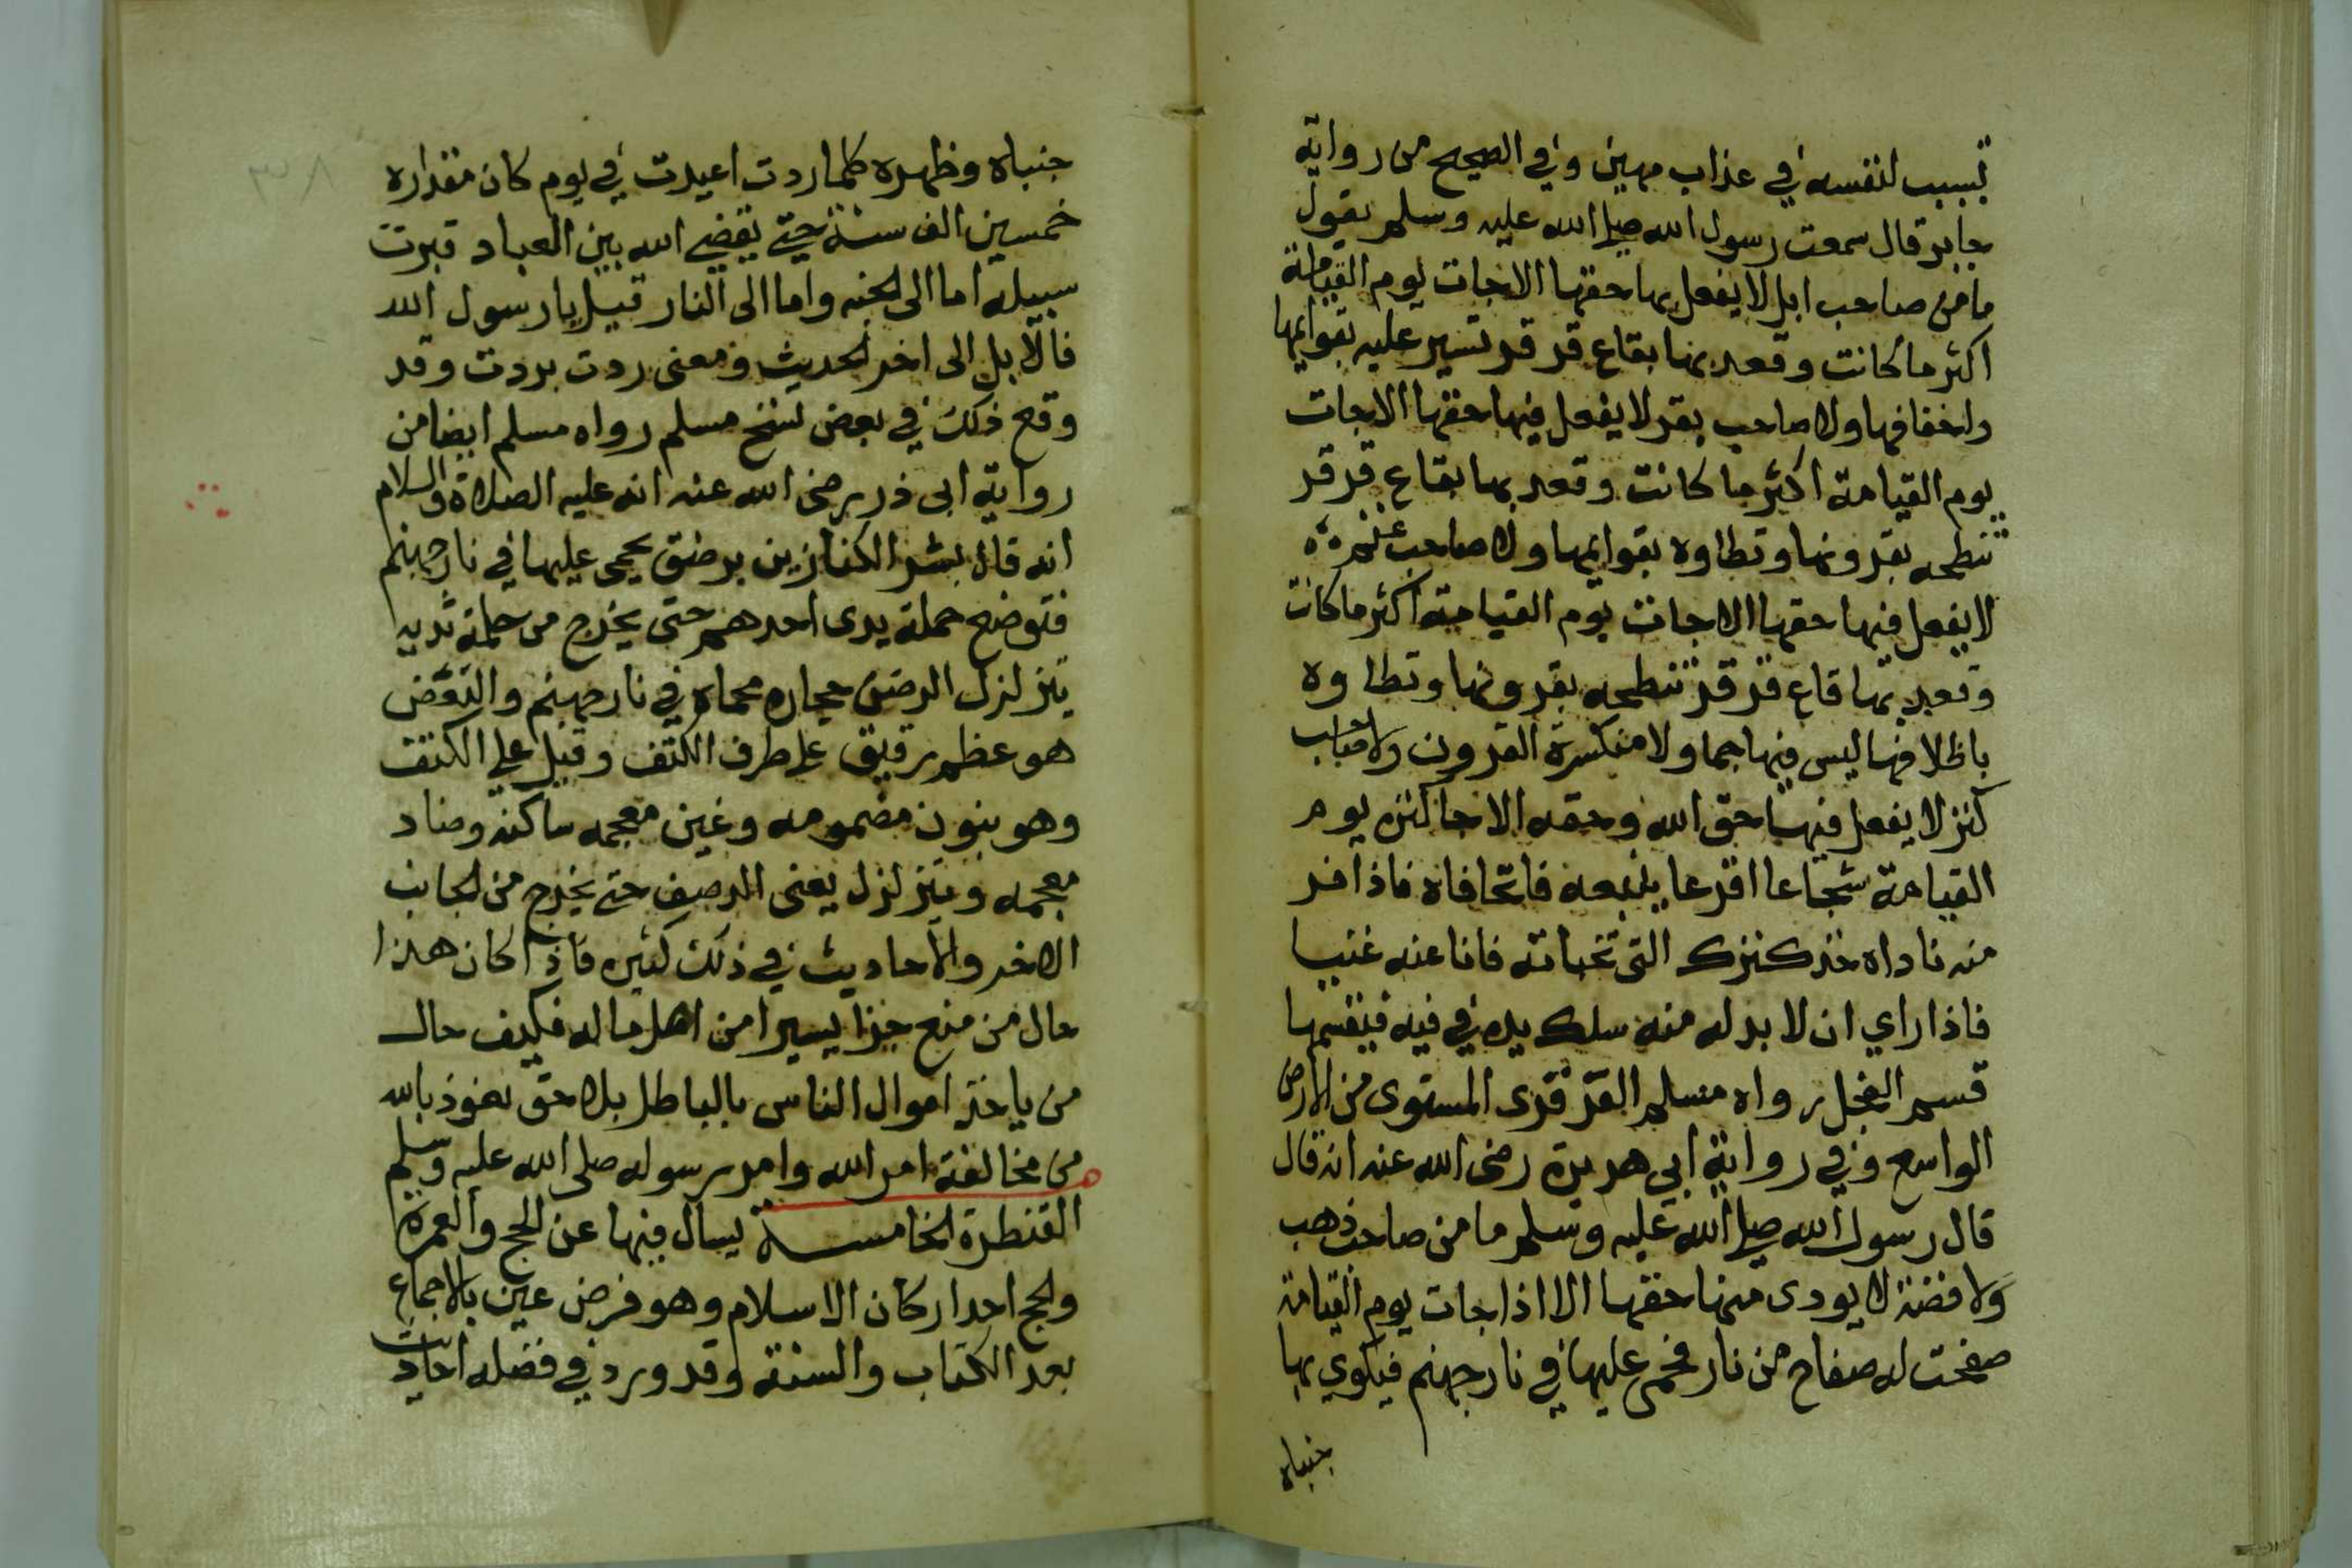 تسبب لنفسه في عذاب مهين وفي الصحيح من رواية
جابر قال سمعت رسول الله صلى الله عليه وسلم يقول
ما من صاحب ابل لا يفعل بها حقها الا جات يوم القيامة
اكثر ما كانت وقعد بها بقاع قرقر تسير عليه بقوايمها
واخفافها ولا صاحب بقر لا يفعل فيها حقها الا جات
يوم القيامة اكثر ما كانت وقعد بها بقاع قرقر
تنطحه بقرونها وتطاوه بقوايمها ولا صاحب غنم
لا يفعل فيها حقها الا جات يوم القيامة اكثر ما كانت
وقعد بها قاع قرقر تنطحه بقرونها وتطاوه
باظلافها ليس فيها جما ولا منكسرة القرون ولا صاحب
كنز لا يفعل فيها حق الله وحقه الا جا كنزه يوم
القيامة شجاعا اقرعا يتبعه فاتحا فاه فاذا فر
منه ناداه خذ كنزك التي تخباته فانا عنه غنيا
فاذا راي ان لا بد له منه سلك يده في فيه فيقسمها
قسم الفحل رواه مسلم القرقرى المستوى من الارض
الواسع وفي رواية ابي هريرة رضى الله عنه انه قال
قال رسول الله صلى الله عليه وسلم ما من صاحب ذهب
ولا فضة لا يودى منها حقها الا اذا جات يوم القيامة
صفحت له صفاح من نار فحمى عليها في نار جهنم فيكوي بها
جنباه
جنباه وظهره كلما ردت اعيدت في يوم كان مقداره
خمسين الف سنة حتى يقضى الله بين العباد فيرت
سبيله اما الى الجنه واما الى النار قيل يا رسول الله
فالابل الى اخر الحديث ومعنى ردت بردت وقد
وقع ذلك في بعض نسخ مسلم رواه مسلم ايضا من
رواية ابى ذر رضى الله عنه انه عليه الصلاة والسلام
انه قال بشر الكنازين برضف يحمى عليها في نار جهنم
فتوضع حملة يدى احدهم حتى يخرج من حملة ثديه
يتزلزل الرضف حجاره محماه في نار جهنم والنغض
هو عظم رقيق على طرف الكتف وقيل على الكتف
وهو بنون مضمومه وغين معجمه ساكنه وضاد
معجمه ويتزلزل يعنى الرصف حتى يخرج من الجانب
الاخر والاحاديث في ذلك كثيره فاذا كان هذا
حال من منع جزا يسيرا من اهل ماله فكيف حال
من ياخذ اموال الناس بالباطل بلا حق نعوذ بالله
من مخالفة امر الله وامر رسوله صلى الله عليه وسلم
القنطرة الخامسة يسال فيها عن الحج والعمرة
والحج احد اركان الاسلام وهو فرض عين بالاجماع
بعد الكتاب والسنة وقد ورد في فضله احاديث